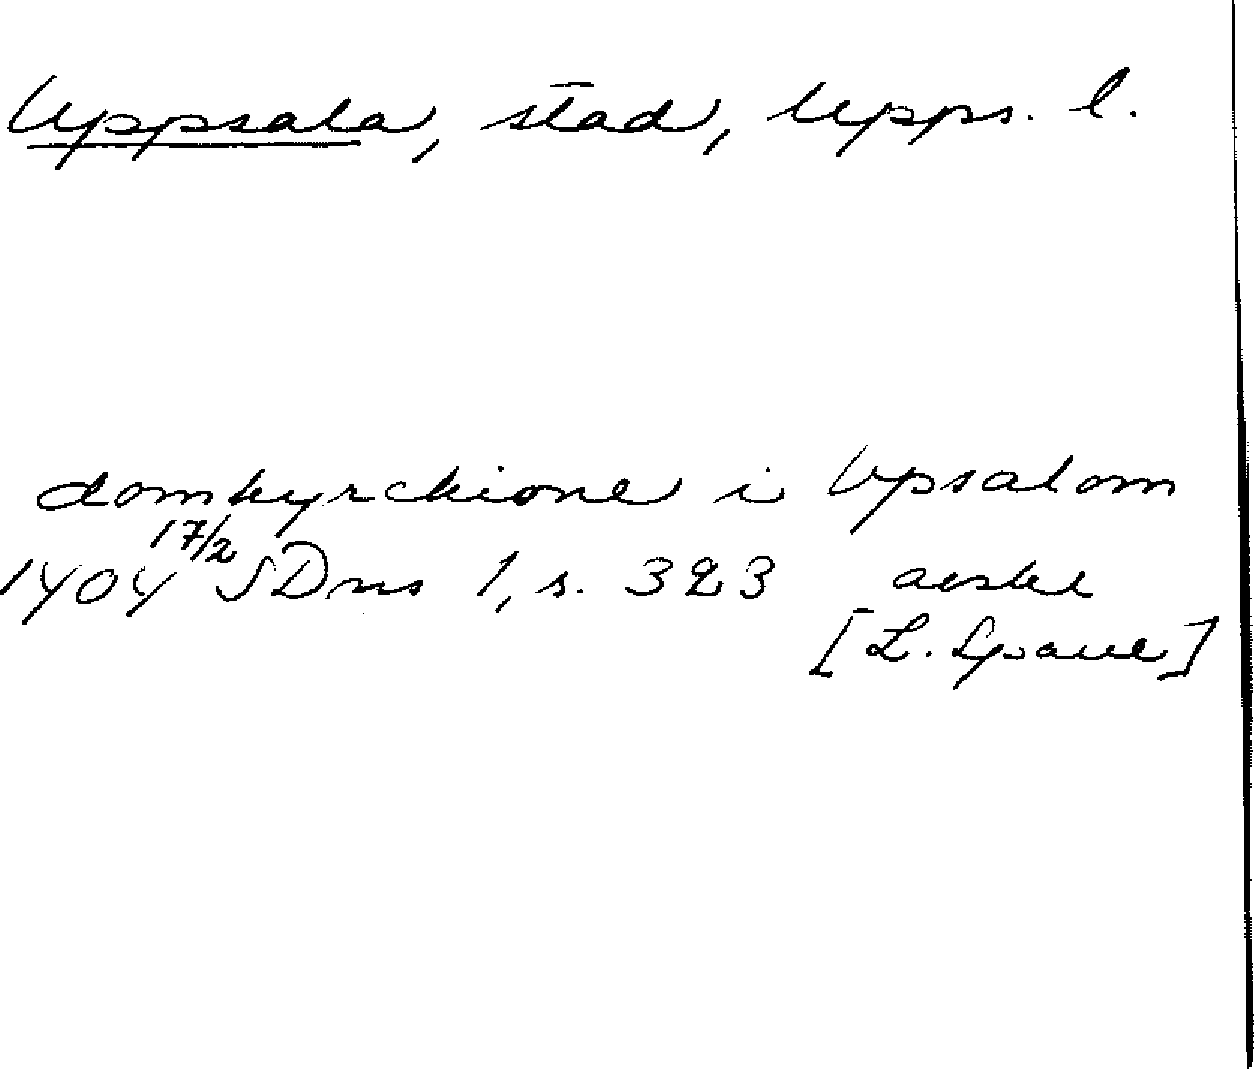 Uppsala, stad, Upps. l.
domkyrckione i Vpsalom
1404 17/2 SDns 1, s. 323 avskr
[L. Sparre]